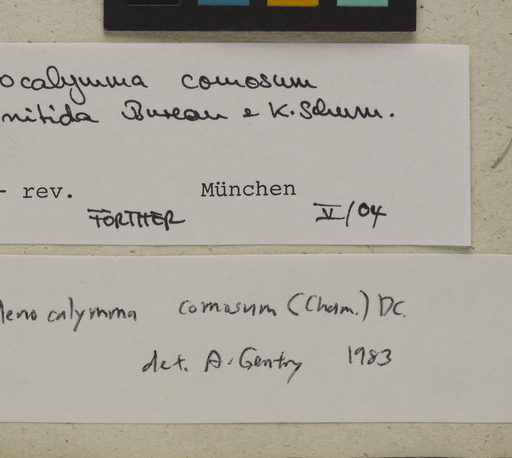 ocalymma comosum
nitida Bureau & K. Schum.
- rev. München
FÖRTHER V/04
lenocalymma comosum (Cham.) DC.
det. A. Gentry 1983